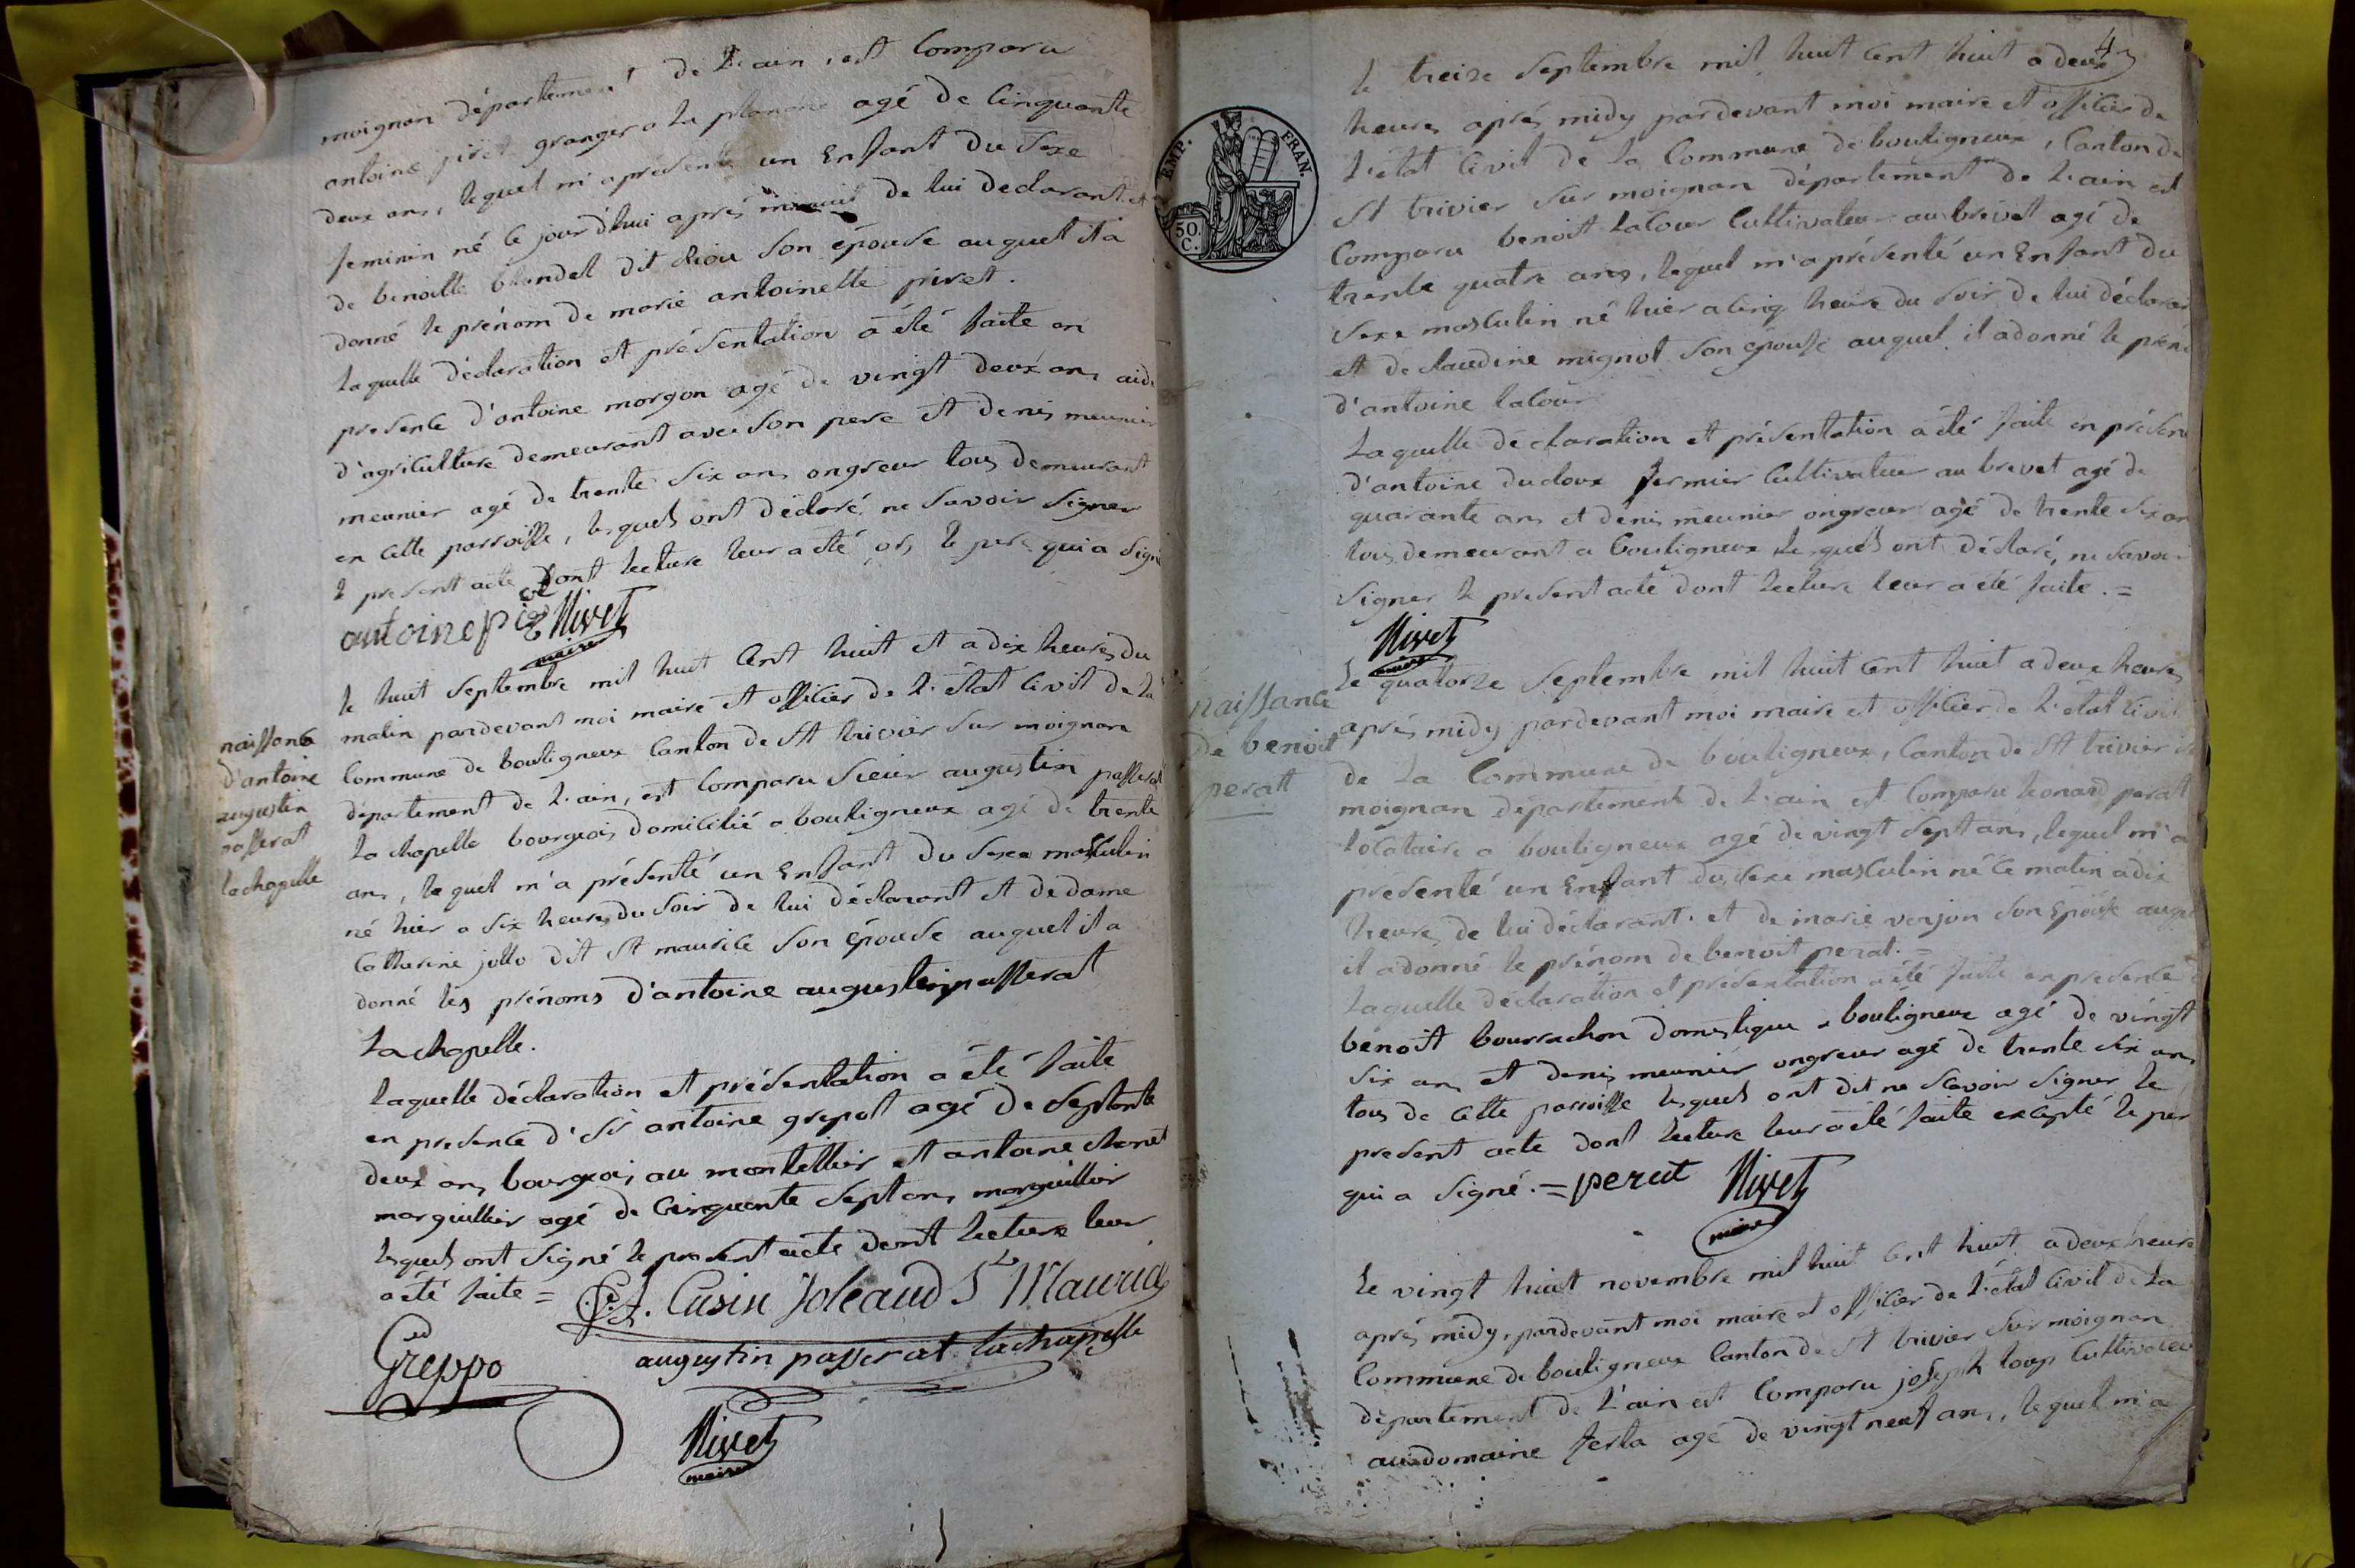 moignan département de L'ain, est Comparu
antoine piret granger a la agé de Cinquante
deux ans, lequel m'a présenté un Enfant du Sexe
feminin né ce jour d'hui après minuit de lui declarant et
de benoitte blondel dit Son épouse auquel il a
donné le prénom de marie antoinette piret.
Laquelle déclaration et présentation a été faite en
presence d'antoine morgon agé de vingt deux ans aide
d'agriculture demeurant avec Son pere et denis meunier
meunier agé de trente Six ans ongreur tous demeurant
en cette parroisse, lesquels ont déclaré ne Savoir Signer
le present acte dont lecture leur a été le pere qui a Signé
antoine piret Nivet
maire
naissance
d'antoine
augustin
passerat
lachapelle
le huit Septembre mil huit Cent huit et a dix heures du
matin pardevant moi maire et officier de L'état Civil de la
Commune de bouligneux Canton de St trivier Sur moignan
département de L'ain, est Comparu Sieur augustin passerat
La chapelle bourgeois domicilié a bouligneux agé de trente
ans, lequel m'a présenté un Enfant du Sexe masculin
né hier a Six heures du Soir de lui déclarant et de dame
Catherine jollo dit St maurice Son épouse auquel il a
donné les prénoms d'antoine augustin passerat
Lachapelle.
Laquelle déclaration et présentation a été faite
en presence d'Sr antoine grepot agé de Septante
deux ans bourgeois au montellier et antoine chanet
marguillier agé de Cinquante Sept ans marguillier
lesquels ont Signé le present acte dont lecture leur
a été faite = Cusin Joleaud St Maurice
Greppo augustin passerat Lachapelle
Nivet
maire
4
EMP. FRAN.
50.
C.
le treize Septembre mil huit Cent huit a deux
heures après midy pardevant moi maire et officier de
L'état Civil de la Commune de bouligneux, Canton de
St trivier Sur moignan département de L'ain est
Comparu benoit Lacour Cultivateur au brevet agé de
trente quatre ans, lequel m'a présenté un Enfant du
Sexe masculin né hier a Cinq heure du Soir de lui déclarant
et de claudine mignot Son épouse auquel il a donné le préno
d'antoine lacour
Laquelle déclaration et présentation a été faite en présence
d'antoine ducloux fermier Cultivateur au brevet agé de
quarante ans et dénis meunier ongreur agé de trente Six an
tous demeurant a bouligneux Lesquels ont déclaré, ne Savoir
Signer le present acte dont lecture leur a été faite. =
Nivet
maire
naissance
de benoit
peratt
Le quatorze Septembre mil huit Cent huit a deux heures
après midy pardevant moi maire et officier de L'état Civil
de La Commune de bouligneux, Canton de St trivier
moignan département de L'ain est Comparu Leonard perat
locataire a bouligneux agé de vingt Sept ans, lequel m'a
presenté un Enfant du Sexe masculin né Ce matin a dix
heures de lui déclarant et de marie verjon Son Epouse auquel
il a donné le prénom de benoit perat. =
Laquelle déclaration et présentation a été faite en presence d
benoit bourrachon domestique a bouligneux agé de vingt
Six ans et denis meunier ongreur agé de trente Six ans
tous de cette parroisse lesquels ont dit ne Scavoir Signer le
present acte dont lecture leur a été faite excepté le per
qui a Signé. = perat Nivet
maire
Le vingt huit novembre mil huit Cent huit a deux heure
après midy, pardevant moi maire et officier de L'état Civil de La
Commune de bouligneux Canton de St trivier Sur moignan
département de L'ain est Comparu joseph loup Cultivateur
au domaine ferla agé de vingt neuf ans, lequel m'a